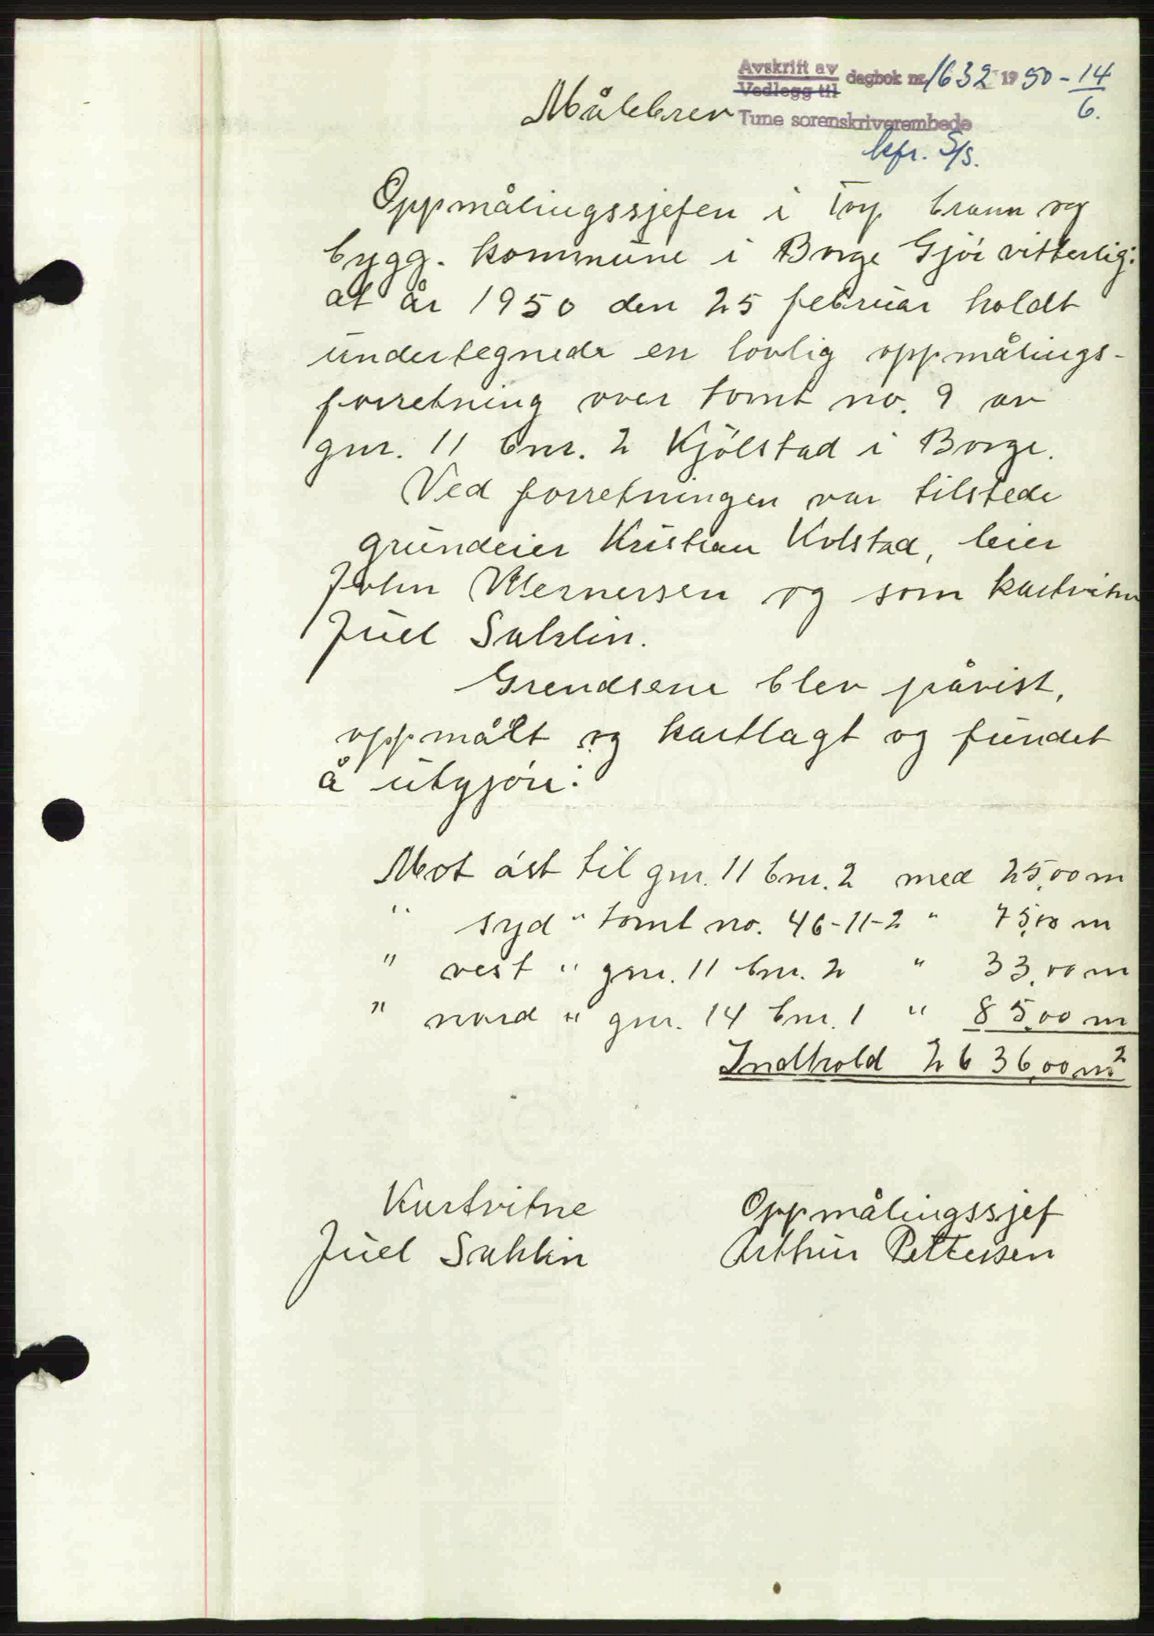 Avskrift av
Vedlegg til
dagbok nr. 1632 1950 - 14/6.
Målebrev
Tune sorenskriverembede
kfr. S/S.
Oppmålingssjefen i Torp brann og
bygg. kommune i Borge Gjör vitterlig:
at år 1950 den 25 februar holdt
undertegnede en lovlig oppmålings-
forretning over tomt no. 9 av
gnr. 11 bnr. 2 Kjölstad i Borge.
Ved forretningen var tilstede
grundeier Kristian Kolstad, leier
John Wernersen og som kartvitne
Juel Sahlin.
Grendsene blev påvist,
oppmålt og kartlagt og fundet
å utgjöre:
Mot öst til gnr. 11 bnr. 2 med 25,00 m
" syd " tomt no. 46-11-2 " 75,00 m
" vest " gnr. 11 bnr. 2 " 33,00 m
" nord " gnr. 14 bnr. 1 " 85,00 m
Indhold 2636,00 m²
Kartvitne
Juel Sahlin
Oppmålingssjef
Arthur Pettersen